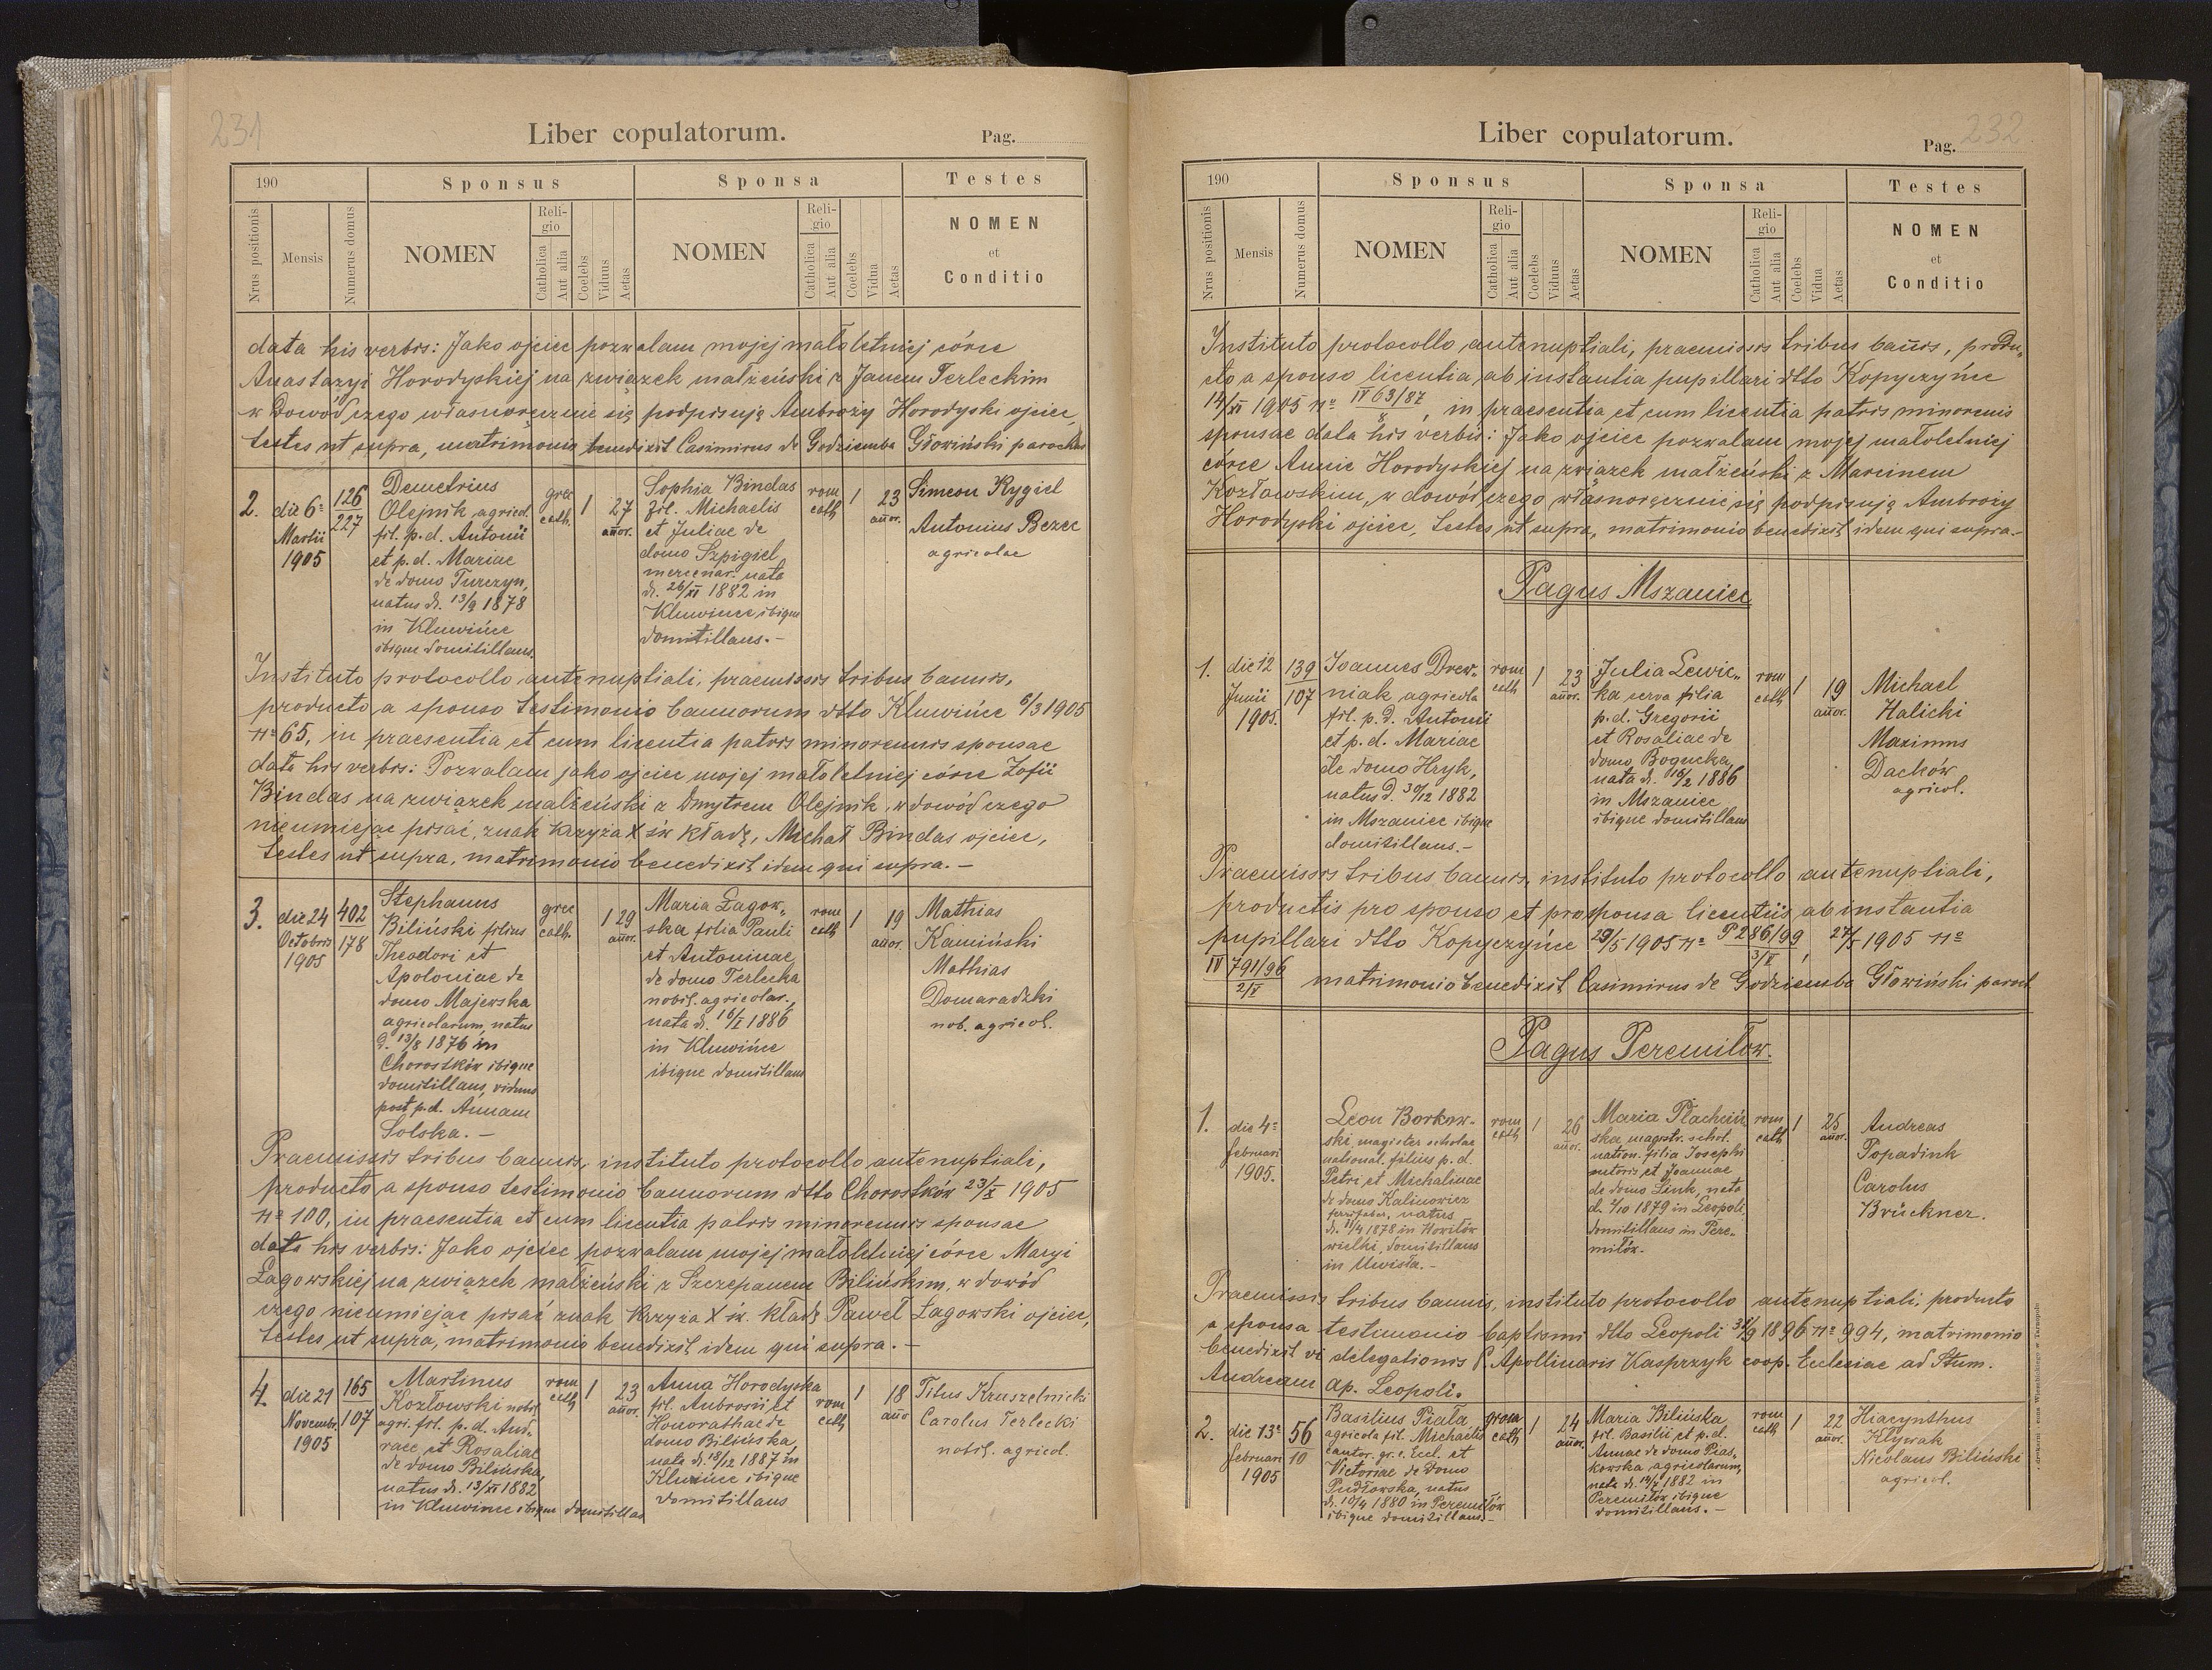 231
Liber copulatorum.
Pag.
190
Sponsus
Sponsa
Testes
Nrus positionis
Mensis
Numerus domus
NOMEN
Religio
Catholica
Aut alia
Coelebs
Viduus
Aetas
NOMEN
Religio
Catholica
Aut alia
Coelebs
Vidua
Aetas
NOMEN
et
Conditio
data his verbis: Jako ojciec pozwalam mojej małoletniej córce
Anastazyi Horodyskiej na związek małżeński z Janem Terleckim
w dowód czego własnoręcznie się podpisują Ambroży Horodyski ojciec,
testes ut supra, matrimonio benedixit Casimirus de Godziemba Głowiński parochus
2.
die 6ª
Martii
1905
126
227
Demetrius
Olejnik agricol.
fil. p.d. Antonii
et p.d. Mariae
de domo Turczyn,
natus d. 13/9 1878
in Kluwińce
ibique domitillans.
grec
cath.
1
27
añor.
Sophia Bindas
fil. Michaelis
et Juliae de
domo Szpigiel,
mercenar. nata
d. 26/XI 1882 in
Kluwince ibique
domitillans.-
rom
cath
1
23
añor.
Simeon Rygiel
Antonius Bezec
agricolae
Instituto protocollo antenuptiali, praemissis tribus bannis,
producto a sponso testimonio bannorum dtto Kluwińce 6/3 1905
Nº 65, in praesentia et cum licentia patris minorennis sponsae
data his verbis: Pozwalam jako ojciec mojej małoletniej córce Zofii
Bindas na związek małżeński z Dmytrem Olejnik, w dowód czego
nieumiejąc pisać, znak krzyża X św kładę, Michał Bindas ojciec,
testes ut supra, matrimonio benedixit idem qui supra.-
3.
die 24
Octobris
1905
402
178
Stephanus
Biliński filius
Theodori et
Apoloniae de
domo Majewska
agricolarum, natus
d. 13/8 1876 in
Chorostków ibique
domitillans, viduus
post p.d. Annam
Solska.-
grec
cath.
1
29
añor.
Maria Łagow-
ska filia Pauli
et Antoninae
de domo Terlecka
nobil. agricolar.,
nata d. 16/I 1886
in Kluwińce
ibique domitillans
rom
cath
1
19
añor.
Mathias
Kamiński
Mathias
Domaradzki
nob. agricol.
Praemissis tribus bannis, instituto protocollo antenuptiali,
producto a sponso testimonio bannorum dtto Chorostków 23/X 1905
Nº 100, in praesentia et cum licentia patris minorennis sponsae
data his verbis: Jako ojciec pozwalam mojej małoletniej córce Maryi
Łagowskiej na związek małżeński z Szczepanem Bilińskim, w dowód
czego nieumiejąc pisać znak krzyża X św. kładę Paweł Łagowski ojciec,
testes ut supra, matrimonio benedixit idem qui supra.-
4.
die 21
Novembr.
1905
165
107
Martinus
Kozłowski nobil.
agri. fil. p.d. And-
raee et Rosaliae
de domo Bilińska,
natus d. 13/XI 1882
in Kluwince ibique domitillas
rom
cath
1
23
añor.
Anna Horodyska
fil. Ambrosii et
Honorathae de
domo Bilińska,
nata d. 18/12 1887 in
Kluwińce ibique
domitillans
rom
cath
1
18
año
Titus Kruszelnicki
Carolus Terlecki
nobil. agricol.
232
Liber copulatorum.
Pag.
190
Sponsus
Sponsa
Testes
Nrus positionis
Mensis
Numerus domus
NOMEN
Religio
Catholica
Aut alia
Coelebs
Viduus
Aetas
NOMEN
Religio
Catholica
Aut alia
Coelebs
Vidua
Aetas
NOMEN
et
Conditio
Instituto protocollo antenuptiali, praemissis tribus bañis, produ-
cto a sponso licentia ab instantia pupillari dtto Kopyczyńce
14/XI 1905 Nº IV 63/87 / 8, in praesentia et cum licentia patris minorenis
sponsae data his verbis: Jako ojciec pozwalam mojej małoletniej
córce Annie Horodyskiej na związek małżeński z Marcinem
Kozłowskim, w dowód czego własnoręcznie się podpisują Ambroży
Horodyski ojciec, testes ut supra, matrimonio benedixit idem qui supra.-
Pagus Mszaniec
1.
die 12
Junii
1905.
139
107
Joannes Drew-
niak agricola
fil. p.d. Antonii
et p.d. Mariae
de domo Hryk,
natus d. 30/12 1882
in Mszaniec ibique
domitillans.-
rom
cath
1
23
añor.
Julia Lewic-
ka serva filia
p.d. Gregorii
et Rosaliae de
domo Bogucka,
nata d. 16/2 1886
in Mszaniec
ibique domitillans
rom
cath
1
19
añor.
Michael
Halicki
Maximus
Dacków
agricol.
Praemissis tribus bannis, instituto protocollo antenuptiali,
productis pro sponso et pro sponsa licentiis ab instantia
pupillari dtto Kopyczyńce 29/5 1905 Nº P 286/99 / 3/V, 27/5 1905 Nº
IV 791/96 / 2/V matrimonio benedixit Casimirus de Godziemba Głowiński paroch
Pagus Peremiłow.
1.
die 4ª
februari
1905.
Leon Borkow-
ski, magister scholae
national. filius p.d.
Petri et Michalinae
de domo Kalinowicz
ferrifaber, natus
d. 11/4 1878 in Howiłów
wielki, domitillans
in Uwisła.-
rom
cath
1
26
añor.
Maria Płachciń-
ska, magistr. schol.
nation. filia Josephi
sutoris et Joannae
de domo Link, nata
d. 7/10 1879 in Leopoli,
domitillans in Pere-
miłów.-
rom
cath
1
25
añor.
Andreas
Popadiuk
Carolus
Brückner.
Praemissis tribus bannis, instituto protocollo antenuptiali, producto
a sponsa testimonio baptismi dtto Leopoli 30/9 1896 Nº 994, matrimonio
benedixit vi delegationis P. Apollinaris Kasprzyk coop. Ecclesiae ad Stum.
Andream Ap. Leopoli.
2.
die 13ª
februari
1905
56
10
Basilius Piała,
agricola fil. Michaelis
cantor. gr. c. Eccl. et
Victoriae de domo
Pudłowska, natus
d. 10/4 1880 in Peremiłów
ibique domitillans.-
cath
1
24
añor.
Maria Bilińska,
fil. Basilii et p.d.
Annae de domo Pias-
kowska agricolarum,
nata d. 14/4 1882 in
Peremiłów ibique
domitillans.-
rom
cath
1
22
añor.
Hiacynthus
Klywak
Nicolaus Biliński
agricol.